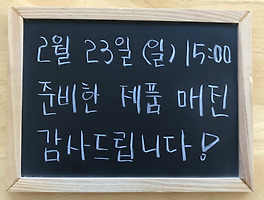 2월 23일 (일) 15:00
준비한 제품 매진
감사드립니다!